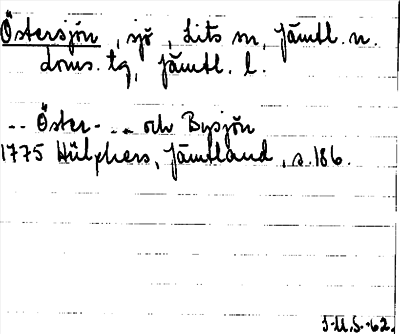 Östersjön, sjö, Lits sn, Jämtl. n.
doms. tg, Jämtl. l.
-- Öster- -- och Bysjön
1775 Hülphers, Jämtland, s. 186.
J.U.S. -62.